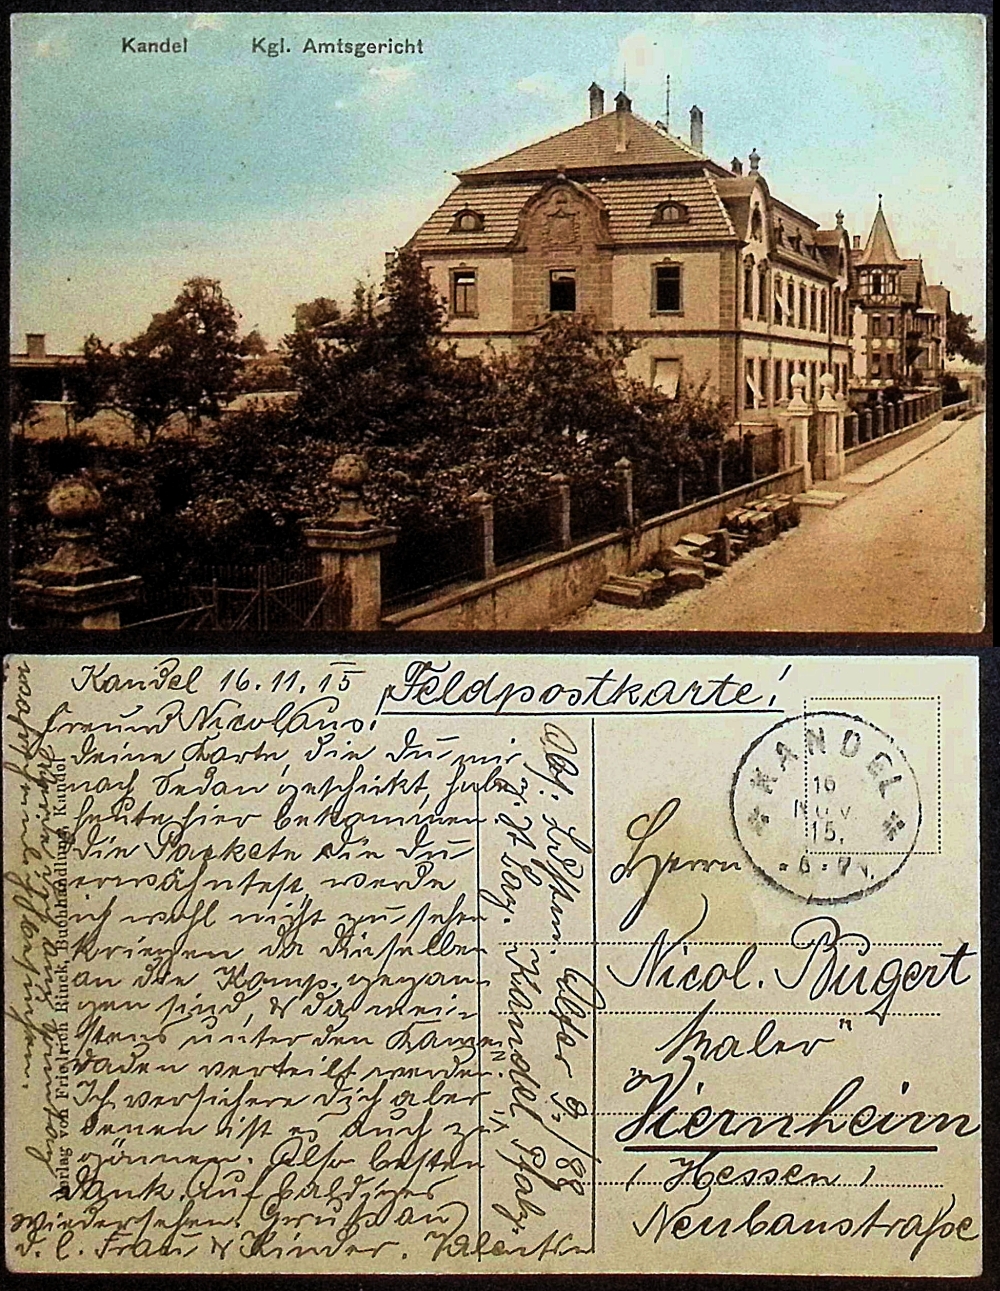 Kandel Kgl. Amtsgericht
Kandel 16.11.15
Feldpostkarte!
Freund Nicolaus!
Deine Karte, die Du mir
nach Sedan geschickt, habe
heute hier bekommen
die Packete die Du
erwähntest, werde
ich wohl nicht zu sehen
kriegen da dieselben
an die Komp. gegan-
gen sind, & da mei-
stens unter den Kame-
raden verteilt werden.
Ich versichere dich aber
denen ist es auch zu
gönnen. Also besten
Dank, auf baldiges
wiedersehen. Gruß an
d. l. Frau & Kinder. Valentin
Verlag von Friedrich Rinck, Buchhandlung, Kandel
Abs.
z. Zt. Laz. Kandel Pfalz
KANDEL
16
NOV.
15.
Herrn
Nicol. Bugert
"Maler"
Viernheim
(Hessen)
Neubaustraße